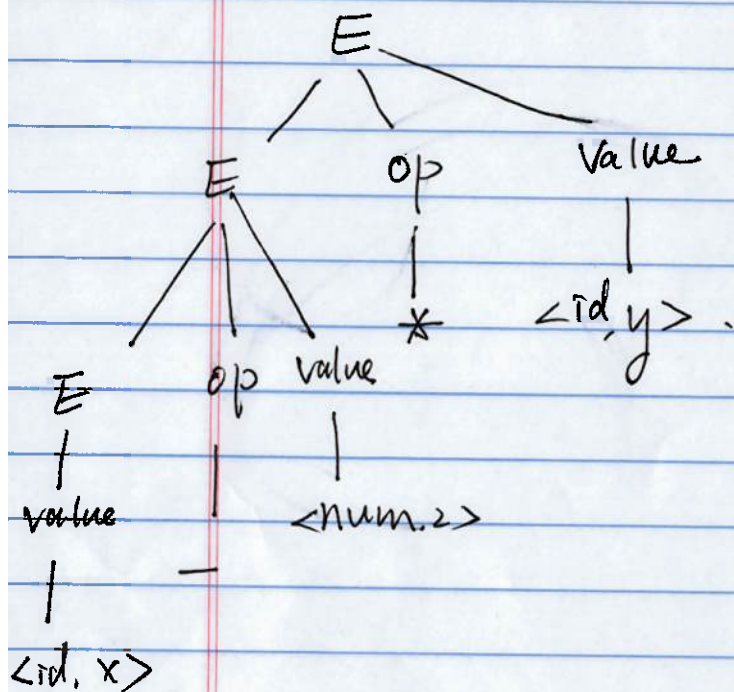 E
E op Value
* <id, y> .
E op value
value <num.2>
−
<id, x>